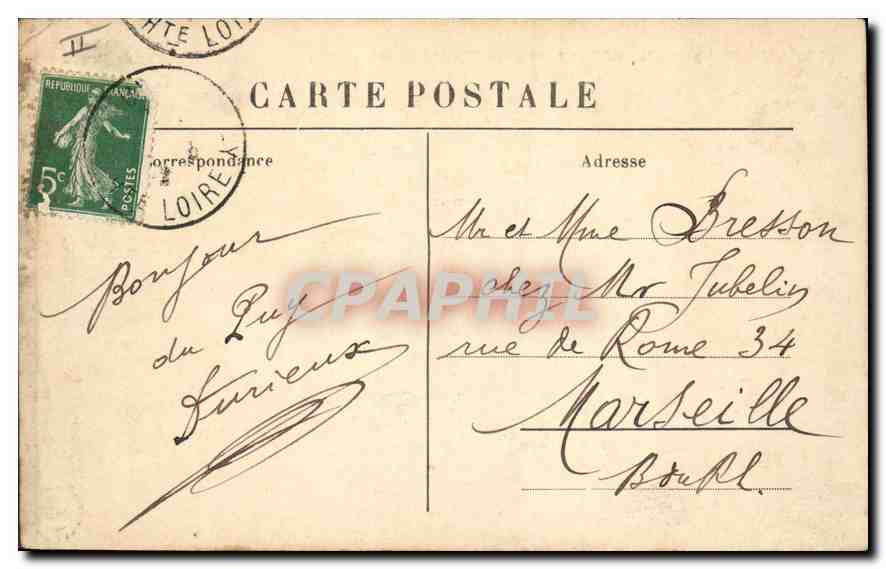 II
HTE LOIRE
CARTE POSTALE
REPUBLIQUE FRANÇAISE
5c
POSTES
LOIRE
Correspondance
Adresse
Bonjour
du Puy
Durieux
Mr et Mme Bresson
chez Mr Jubelin
rue de Rome 34
Marseille
B du Rh.
CPAPHIL